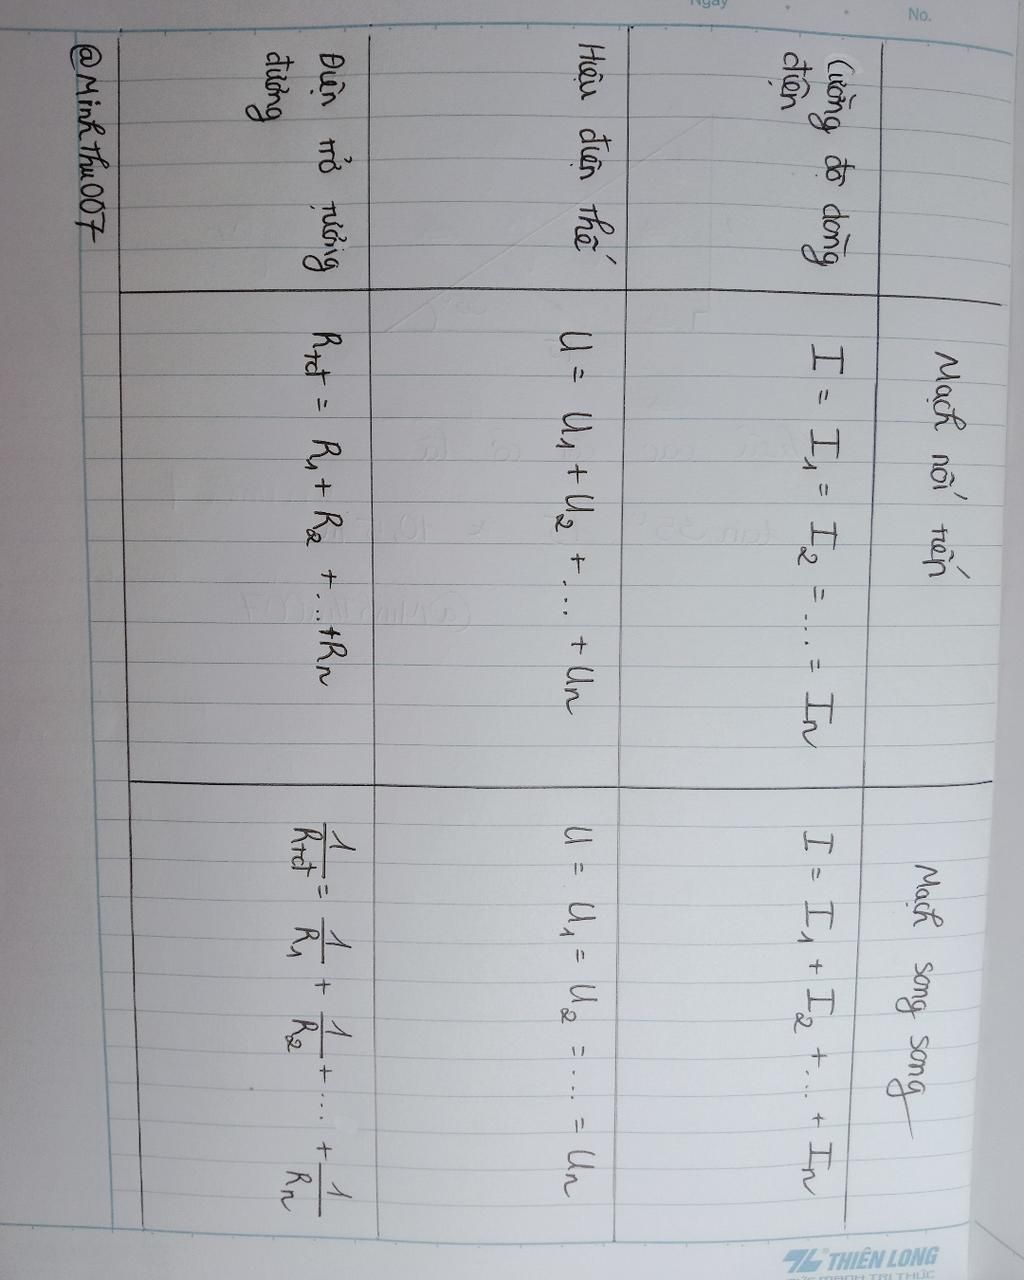 Ngày
No.
Mạch nối tiếp Mạch song song
Cường độ dòng điện I = I1 = I2 = ... = In I = I1 + I2 + ... + In
Hiệu điện thế U = U1 + U2 + ... + Un U = U1 = U2 = ... = Un
Điện trở tương đương Rtđ = R1 + R2 + ... + Rn 1/Rtđ = 1/R1 + 1/R2 + ... + 1/Rn
@MinhThu007
THIÊN LONG
SỨC MẠNH TRI THỨC